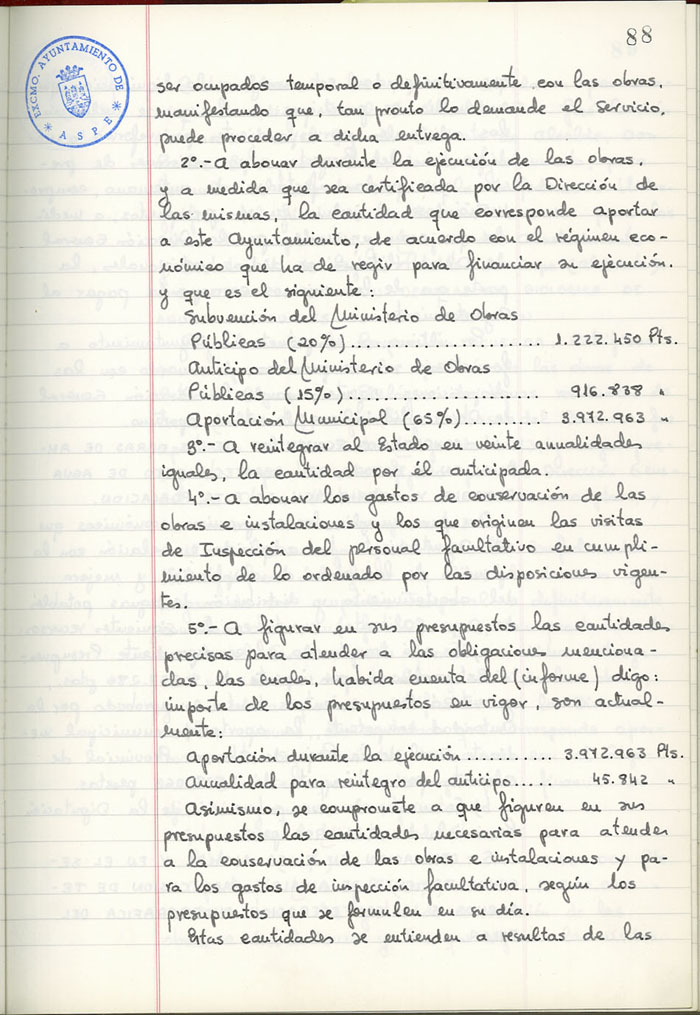 88
EXCMO. AYUNTAMIENTO DE
* ASPE *
ser ocupados temporal o definitivamente con las obras,
manifestando que, tan pronto lo demande el Servicio,
puede proceder a dicha entrega.
2º.- A abonar durante la ejecución de las obras,
y a medida que sea certificada por la Dirección de
las mismas, la cantidad que corresponde aportar
a este Ayuntamiento, de acuerdo con el régimen eco-
nómico que ha de regir para financiar su ejecución.
y que es el siguiente:
Subvención del Ministerio de Obras
Públicas (20%)...................... 1.222.450 Pts.
Anticipo del Ministerio de Obras
Públicas (15%)...................... 916.838 "
Aportación Municipal (65%).......... 3.972.963 "
3º.- A reintegrar al Estado en veinte anualidades
iguales, la cantidad por él anticipada.
4º.- A abonar los gastos de conservación de las
obras e instalaciones y los que originen las visitas
de Inspección del personal facultativo en cumpli-
miento de lo ordenado por las disposiciones vigen-
tes.
5º.- A figurar en sus presupuestos las cantidades
precisas para atender a las obligaciones menciona-
das, las cuales, habida cuenta del (informe) digo:
importe de los presupuestos en vigor, son actual-
mente:
Aportación durante la ejecución........... 3.972.963 Pts.
Anualidad para reintegro del anticipo..... 45.842 "
Asimismo, se compromete a que figuren en sus
presupuestos las cantidades necesarias para atender
a la conservación de las obras e instalaciones y pa-
ra los gastos de inspección facultativa, según los
presupuestos que se formulen en su día.
Estas cantidades se entienden a resultas de las